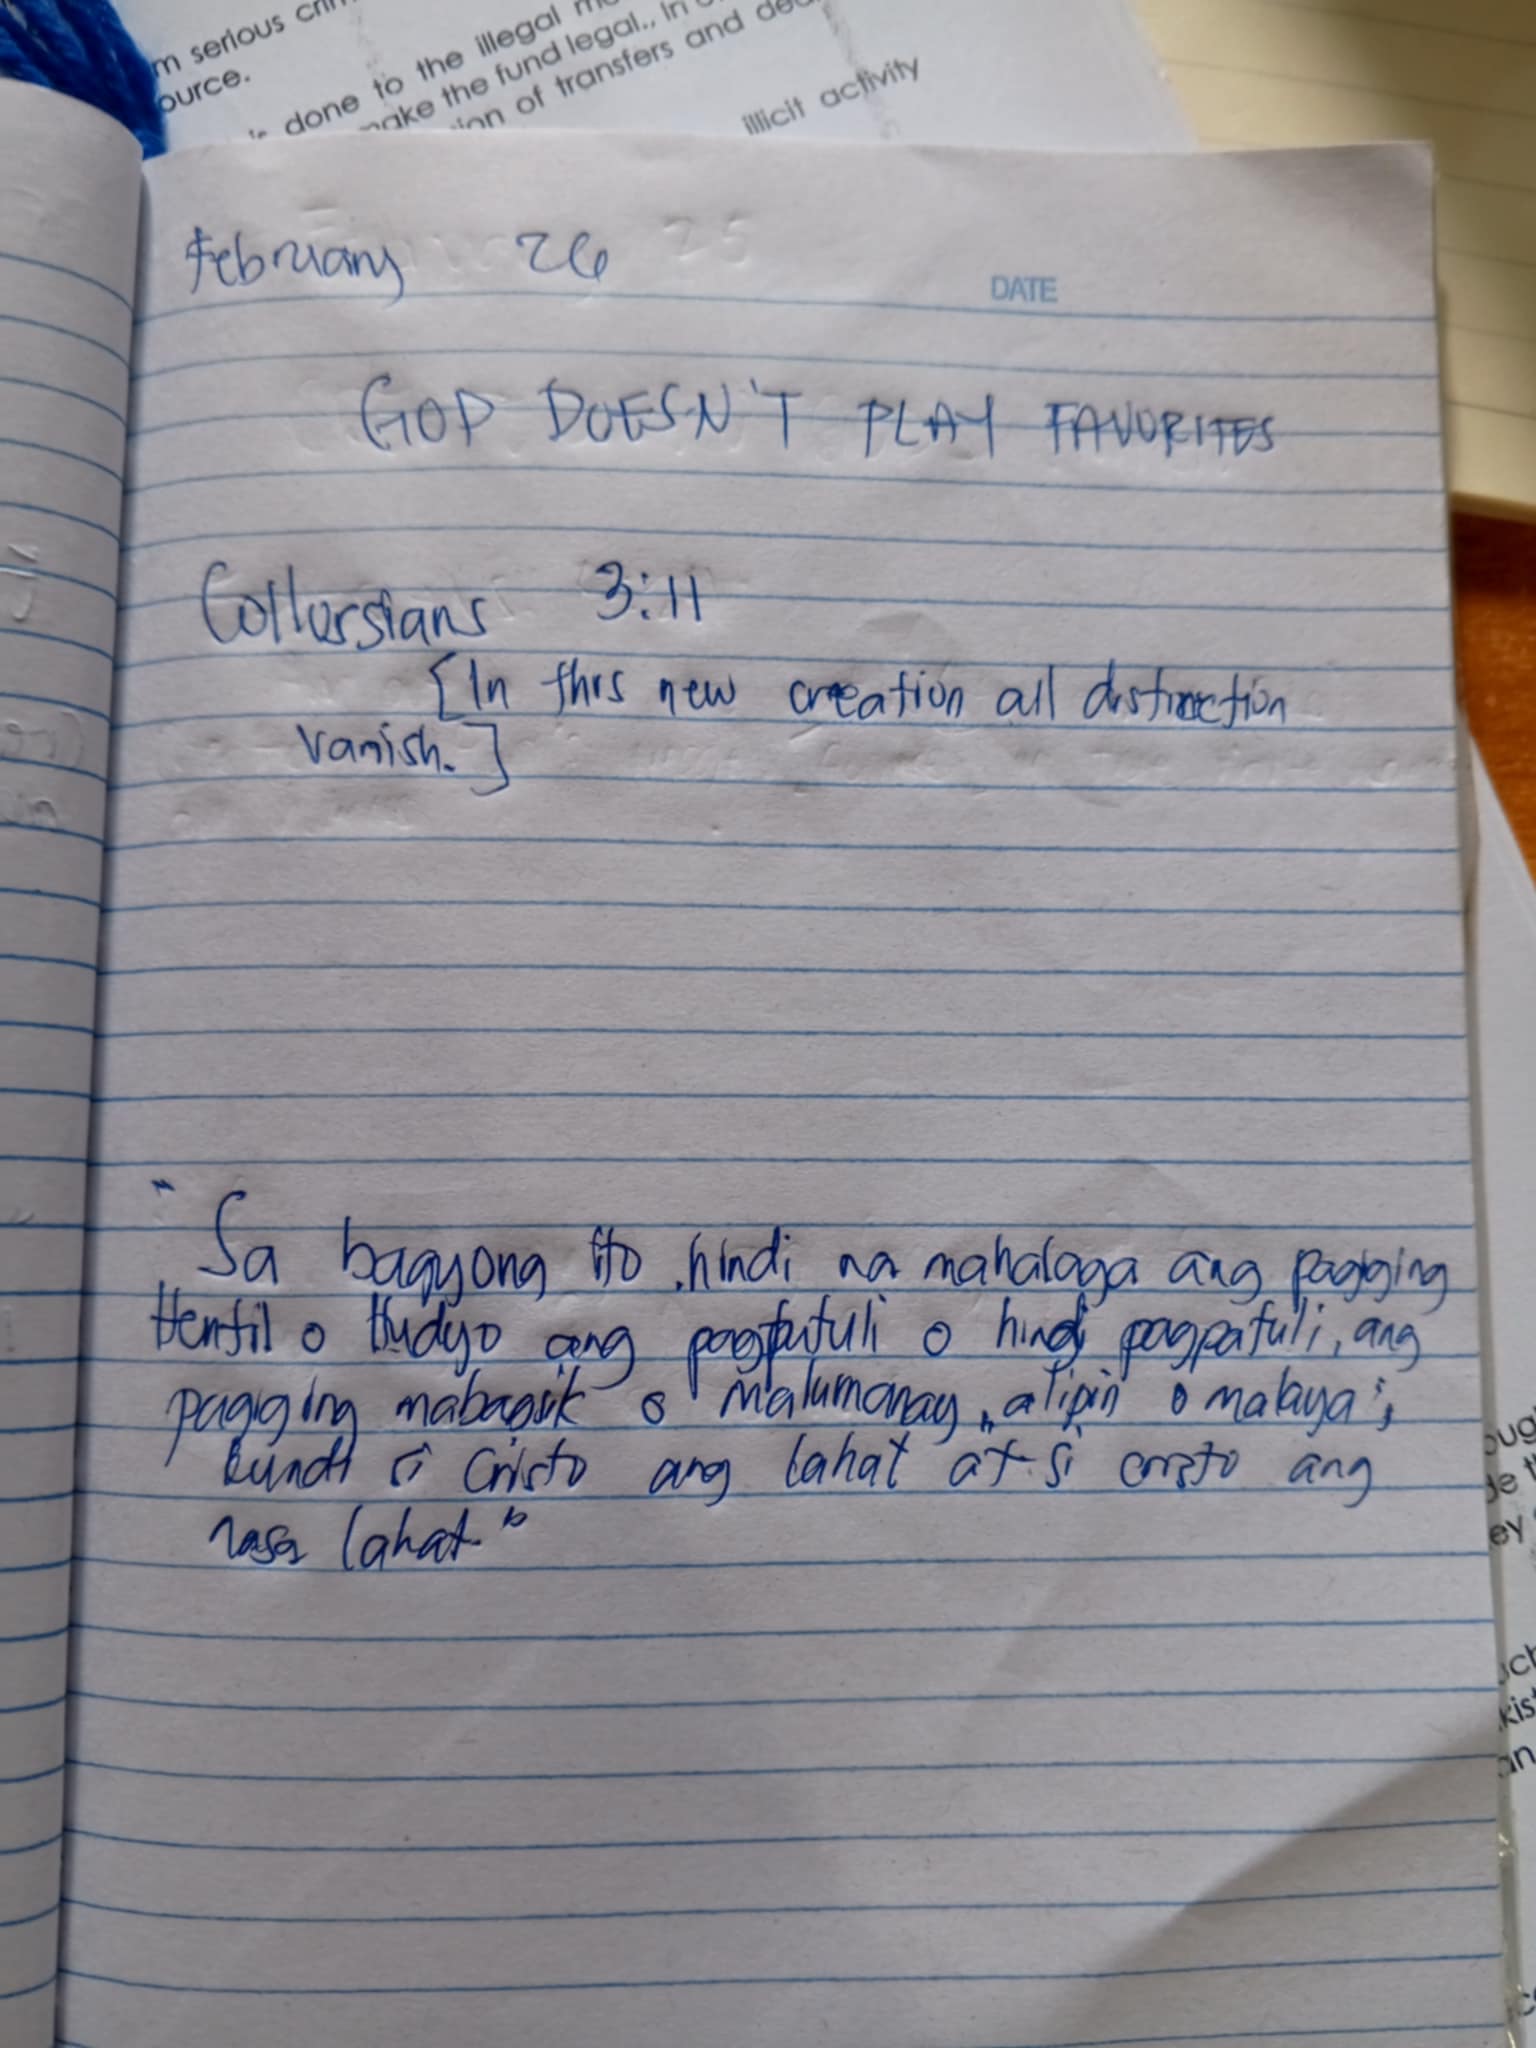 m serious
ource.
done to the illegal
make the fund legal., in
ion of transfers and
illicit activity
February 26
DATE
GOD DOESN'T PLAY FAVORITES
Collorsians 3:11
[In this new creation all distinction
vanish.]
"Sa bagyong ito, hindi na mahalaga ang pagiging
Hentil o Hudyo ang pagtutuli o hindi pagpatuli, ang
pagiging mabagsik o malumanay, alipin o malaya;
kundi si Cristo ang lahat at si cristo ang
nasa lahat."